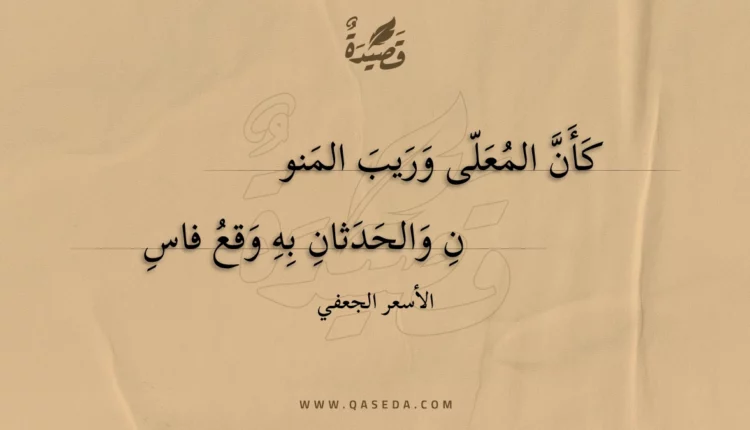 قَصِيْدَةٌ
كَأَنَّ المُعَلّى وَرَيبَ المَنو
نِ وَالحَدَثانِ بِهِ وَقعُ فاسِ
الأسعر الجعفي
WWW.QASEDA.COM